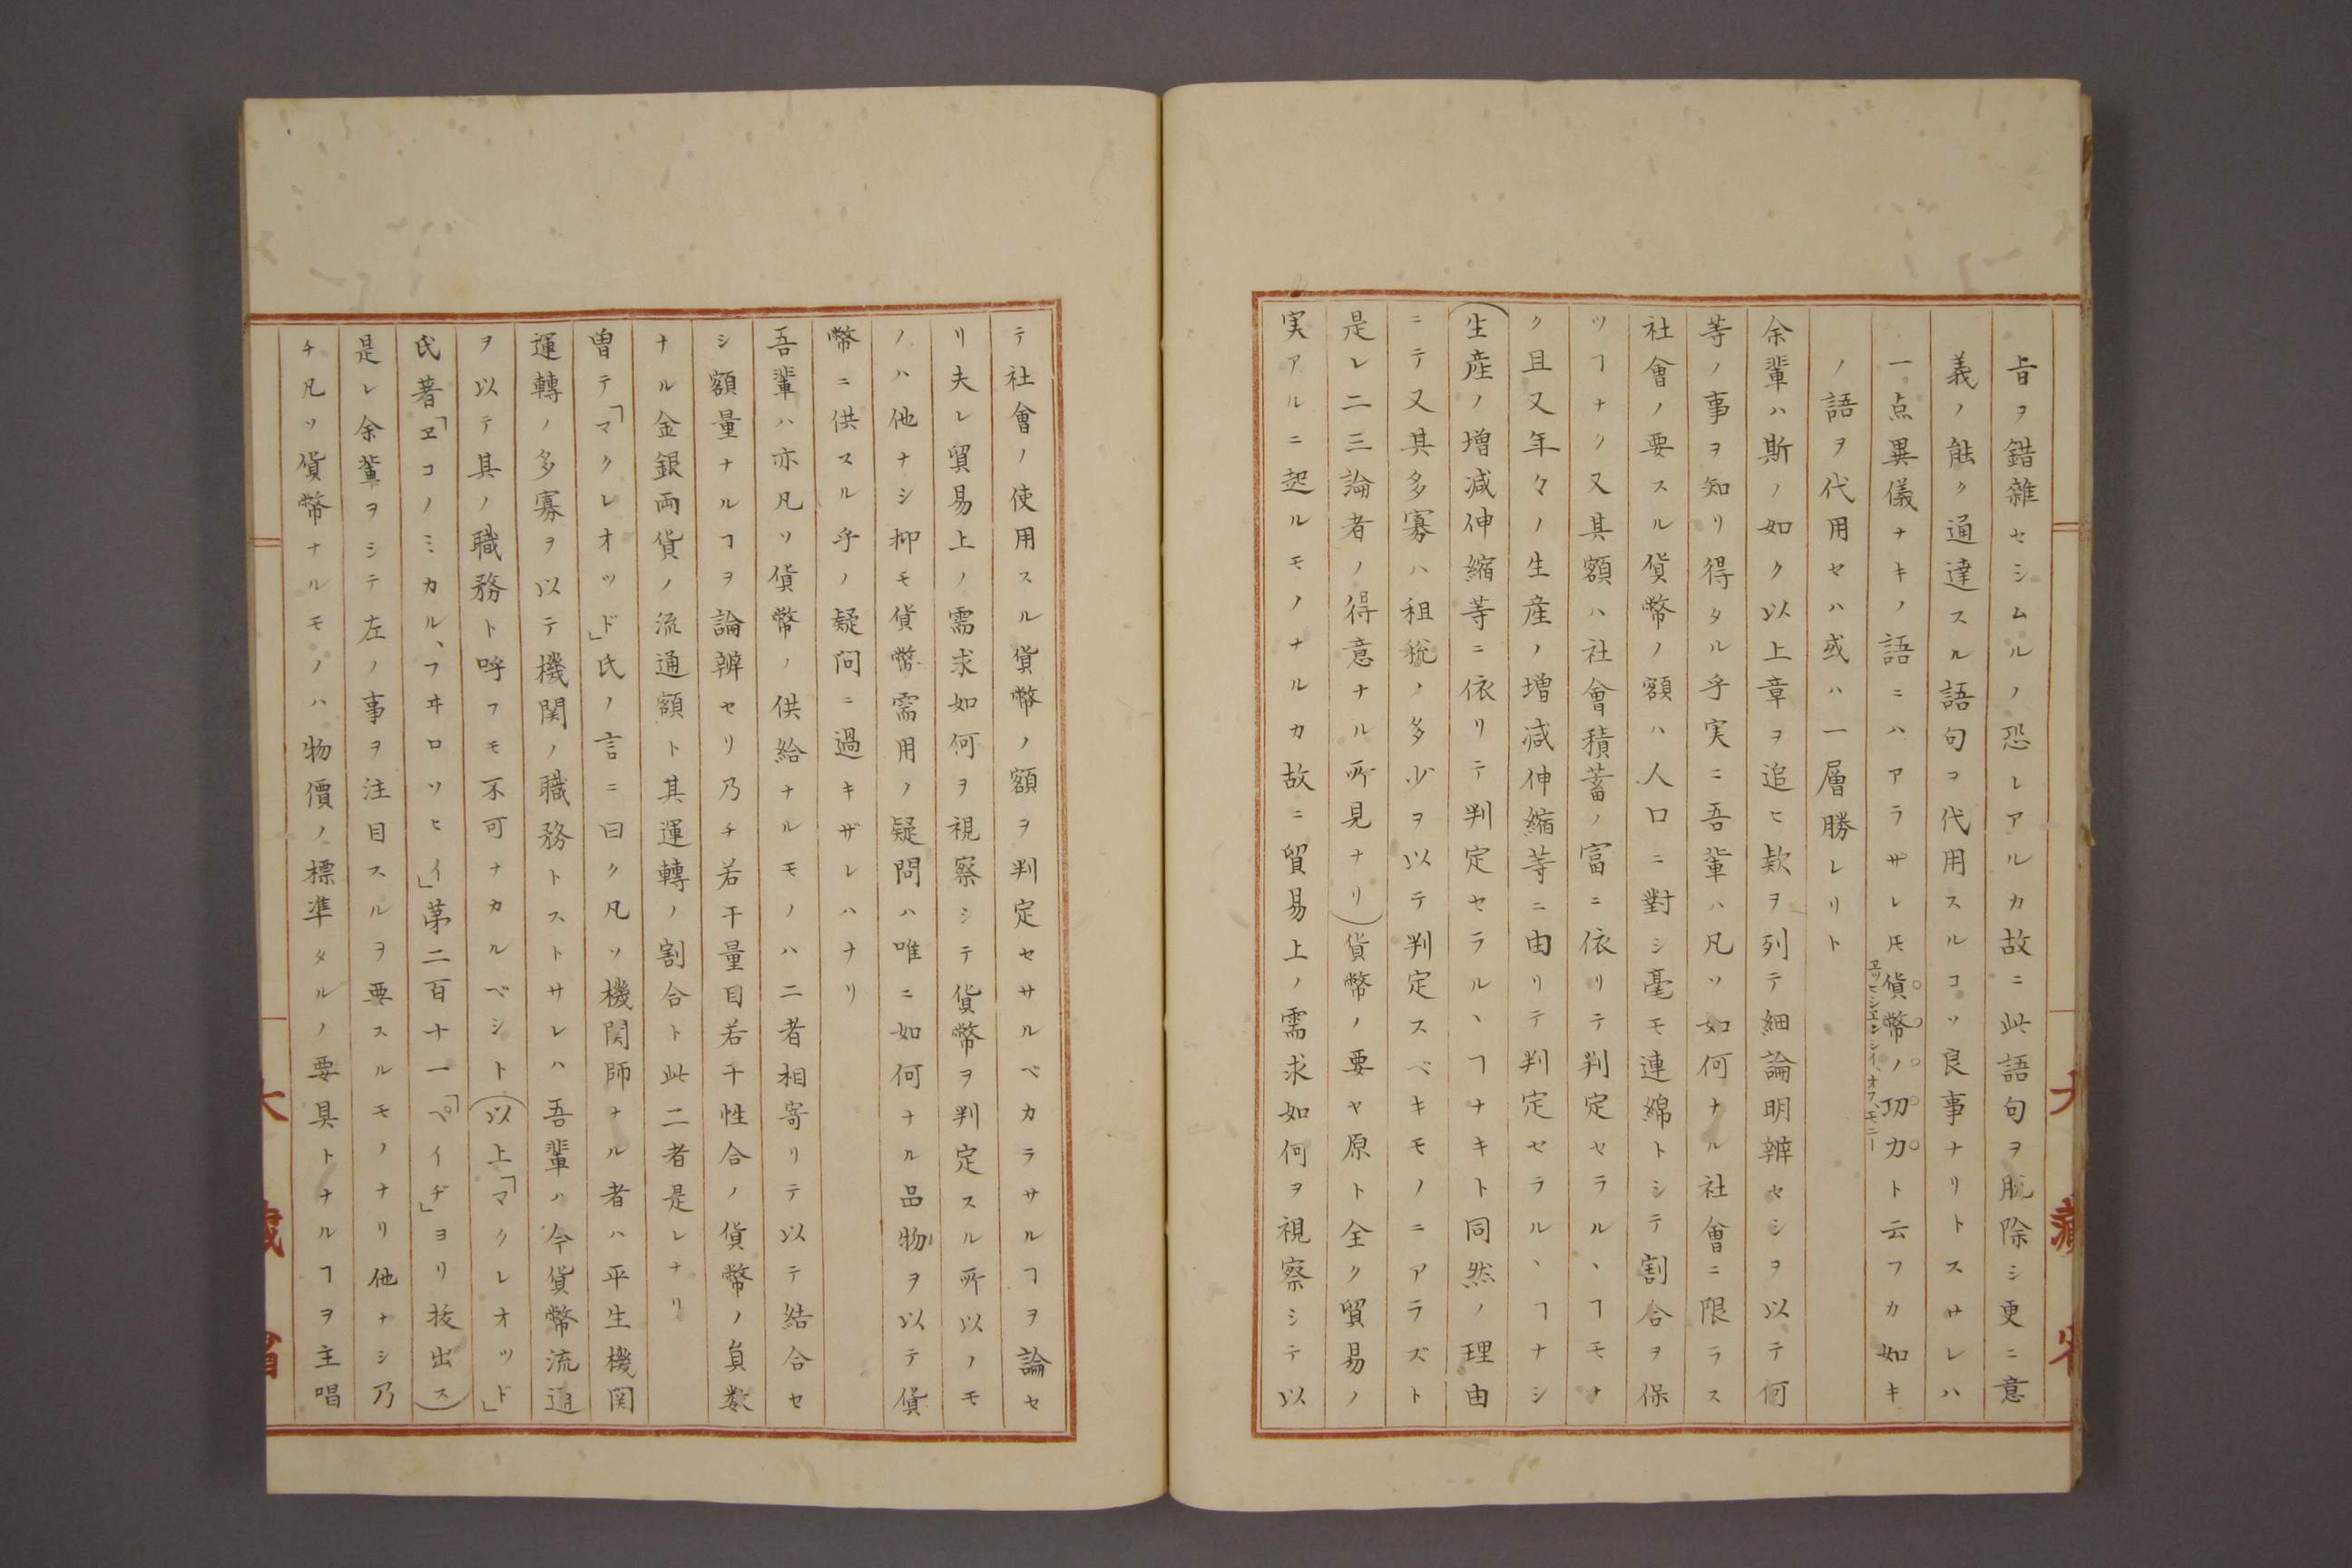 旨ヲ錯雜セシムルノ恐レアルカ故ニ此語句ヲ脱除シ更ニ意
義ノ能ク通達スル語句ヲ代用スルコソ良事ナリトスサレハ
一点異儀ナキノ語ニハアラサレ𪜈貨幣ノ功力ト云フカ如キ
ヱッヒシエンシイ、オフ、モニー
ノ語ヲ代用セハ或ハ一層勝レリト
余輩ハ斯ノ如ク以上章ヲ追ヒ欵ヲ列テ細論明辨セシヲ以テ何
等ノ事ヲ知リ得タル乎実ニ吾輩ハ凡ソ如何ナル社會ニ限ラス
社會ノ要スル貨幣ノ額ハ人口ニ對シ毫モ連綿トシテ割合ヲ保
ツヿナク又其額ハ社會積蓄ノ富ニ依リテ判定セラルヽヿモナ
ク且又年々ノ生産ノ増減伸縮等ニ由リテ判定セラルヽヿナシ
(生産ノ増減伸縮等ニ依リテ判定セラルヽヿナキト同然ノ理由
ニテ又其多寡ハ租税ノ多少ヲ以テ判定スベキモノニアラズト
是レ二三論者ノ得意ナル所見ナリ)貨幣ノ要ヤ原ト全ク貿易ノ
実アルニ起ルモノナルカ故ニ貿易上ノ需求如何ヲ視察シテ以
テ社會ノ使用スル貨幣ノ額ヲ判定セサルベカラサルヿヲ論セ
リ夫レ貿易上ノ需求如何ヲ視察シテ貨幣ヲ判定スル所以ノモ
ノハ他ナシ抑モ貨幣需用ノ疑問ハ唯ニ如何ナル品物ヲ以テ貨
幣ニ供スル乎ノ疑问ニ過キザレハナリ
吾輩ハ亦凡ソ貨幣ノ供給ナルモノハ二者相寄リテ以テ結合セ
シ額量ナルヿヲ論辨セリ乃チ若干量目若干性合ノ貨幣ノ員数
ナル金銀両貨ノ流通額ト其運轉ノ割合ト此二者是レナリ
曽テ「マクレオッド」氏ノ言ニ曰ク凡ソ機関師ナル者ハ平生機関
運轉ノ多寡ヲ以テ機関ノ職務トストサレハ吾輩ハ今貨幣流通
ヲ以テ其ノ職務ト呼フモ不可ナカルベシト(以上「マクレオッド」
氏著「ヱコノミカル、フヰロソヒイ」苐二百十一「ペイヂ」ヨリ抜出ス)
是レ余輩ヲシテ左ノ事ヲ注目スルヲ要スルモノナリ他ナシ乃
チ凡ソ貨幣ナルモノハ物價ノ標準タルノ要具トナルヿヲ主唱
大藏省
大藏省